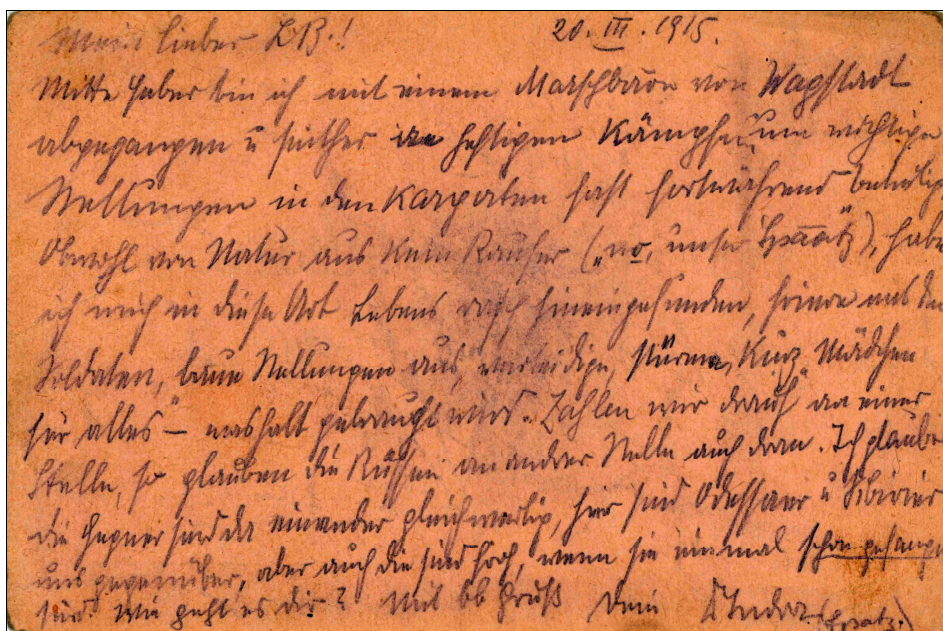 Mein lieber LB.! 20. III. 1915.
Mitte Feber bin ich mit einem Marschbaon von Wagstadt
abgegangen u seither in heftigen Kämpfen um wichtige
Stellungen in den Karpaten fast fortwährend beteiligt
Obwohl von Natur aus kein Raufer („no, unser"), habe
ich mich in diese Art Lebens rasch hineingefunden, aus den
Soldaten, baue Stellungen aus, verteidige, stürme, kurz „Mädchen
für alles" – was halt gebraucht wird. Zahlen wir drauf an einer
Stelle, so glauben die Russen an andrer Stelle auch dran. Ich glaube
die Gegner sind da einander gleichwertig, hier sind Odessaer u Sibirier
uns gegenüber, aber auch die sind froh, wenn sie einmal schon gefangen
sind. Wie geht es dir? Mit bb Gruß Dein